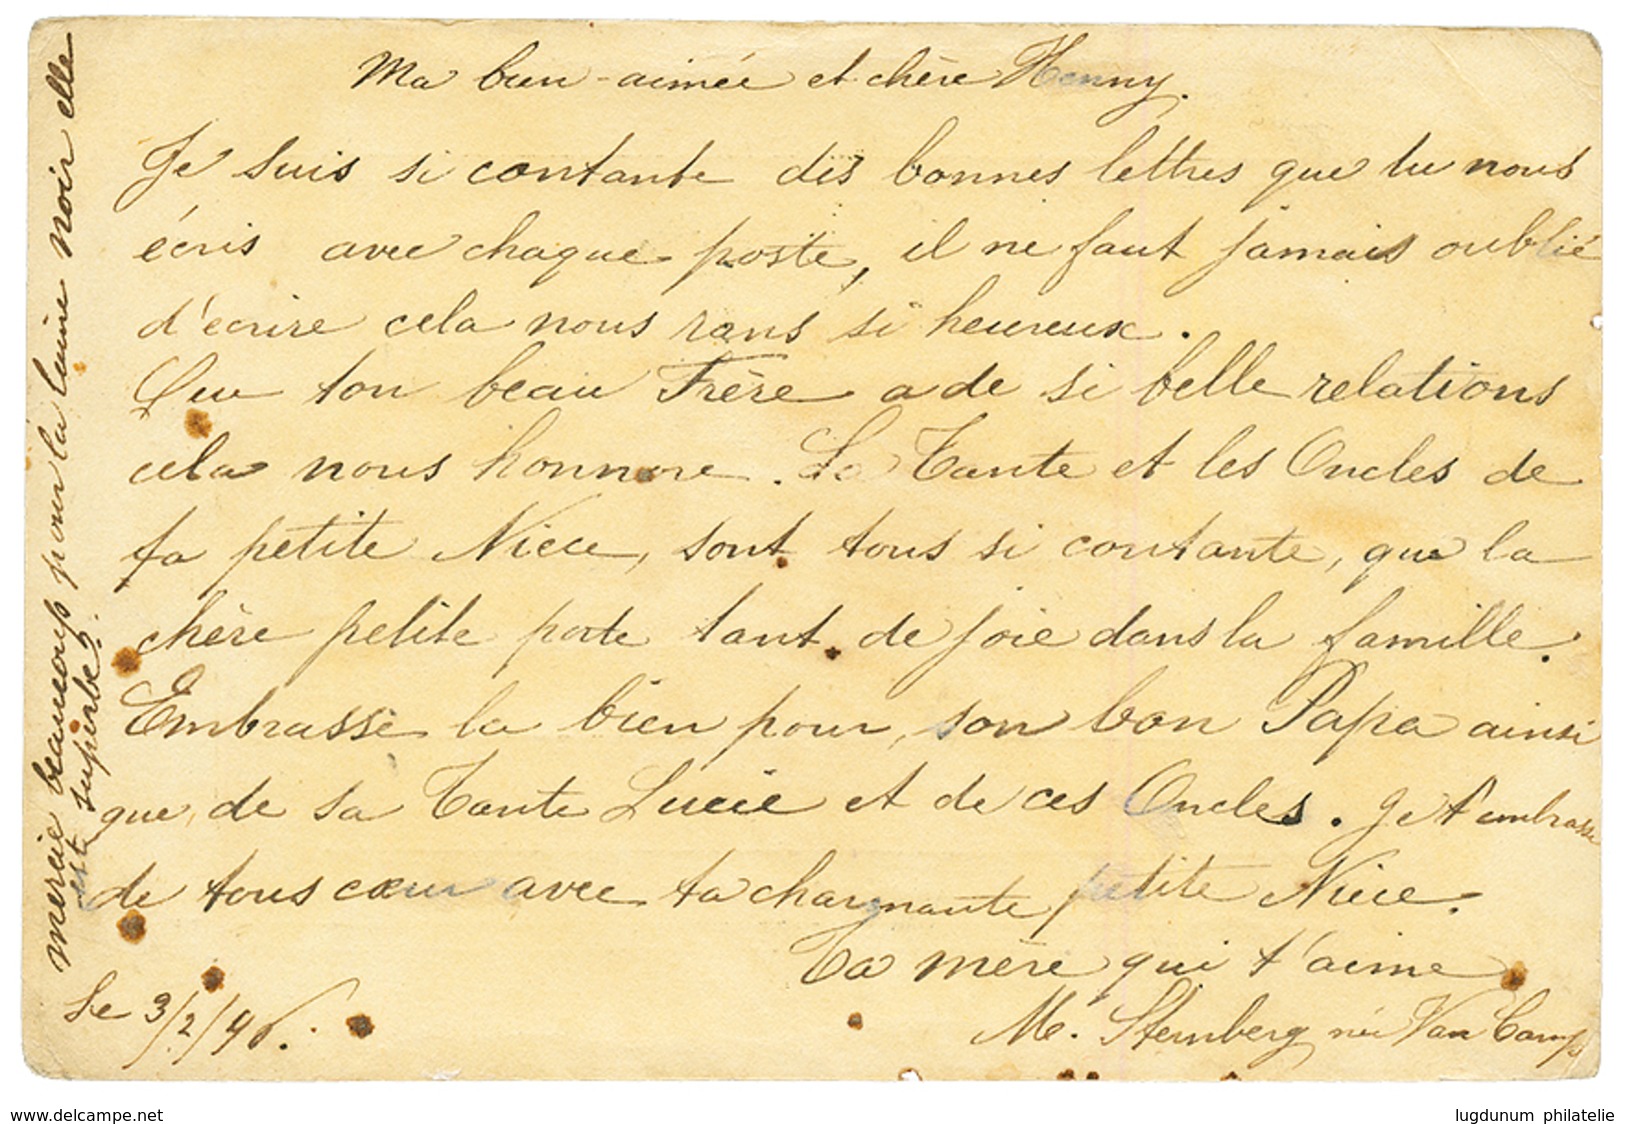 Ma bien-aimée et chère Henny.
Je suis si contante dès bonnes lettres que tu nous
écris avec chaque poste, il ne faut jamais oublié
d'écrire cela nous rans si heureux.
Que ton beau Frère a de si belle relations
cela nous honnore. La Tante et les Oncles de
ta petite Niece, sont tous si contante, que la
chère petite porte tant de joie dans la famille.
Embrasse la bien pour, son bon Papa ainsi
que, de sa Tante Lucie et de ces Oncles. Je t'embrasse
de tous cœur avec ta charmante petite Niece.
Ta mère qui t'aime
M. Sternberg née Van Camp
Le 3/2/96.
mercie beaucoup pour la laine noir elle
est superbe.
www.delcampe.net
lugdunum philatelie